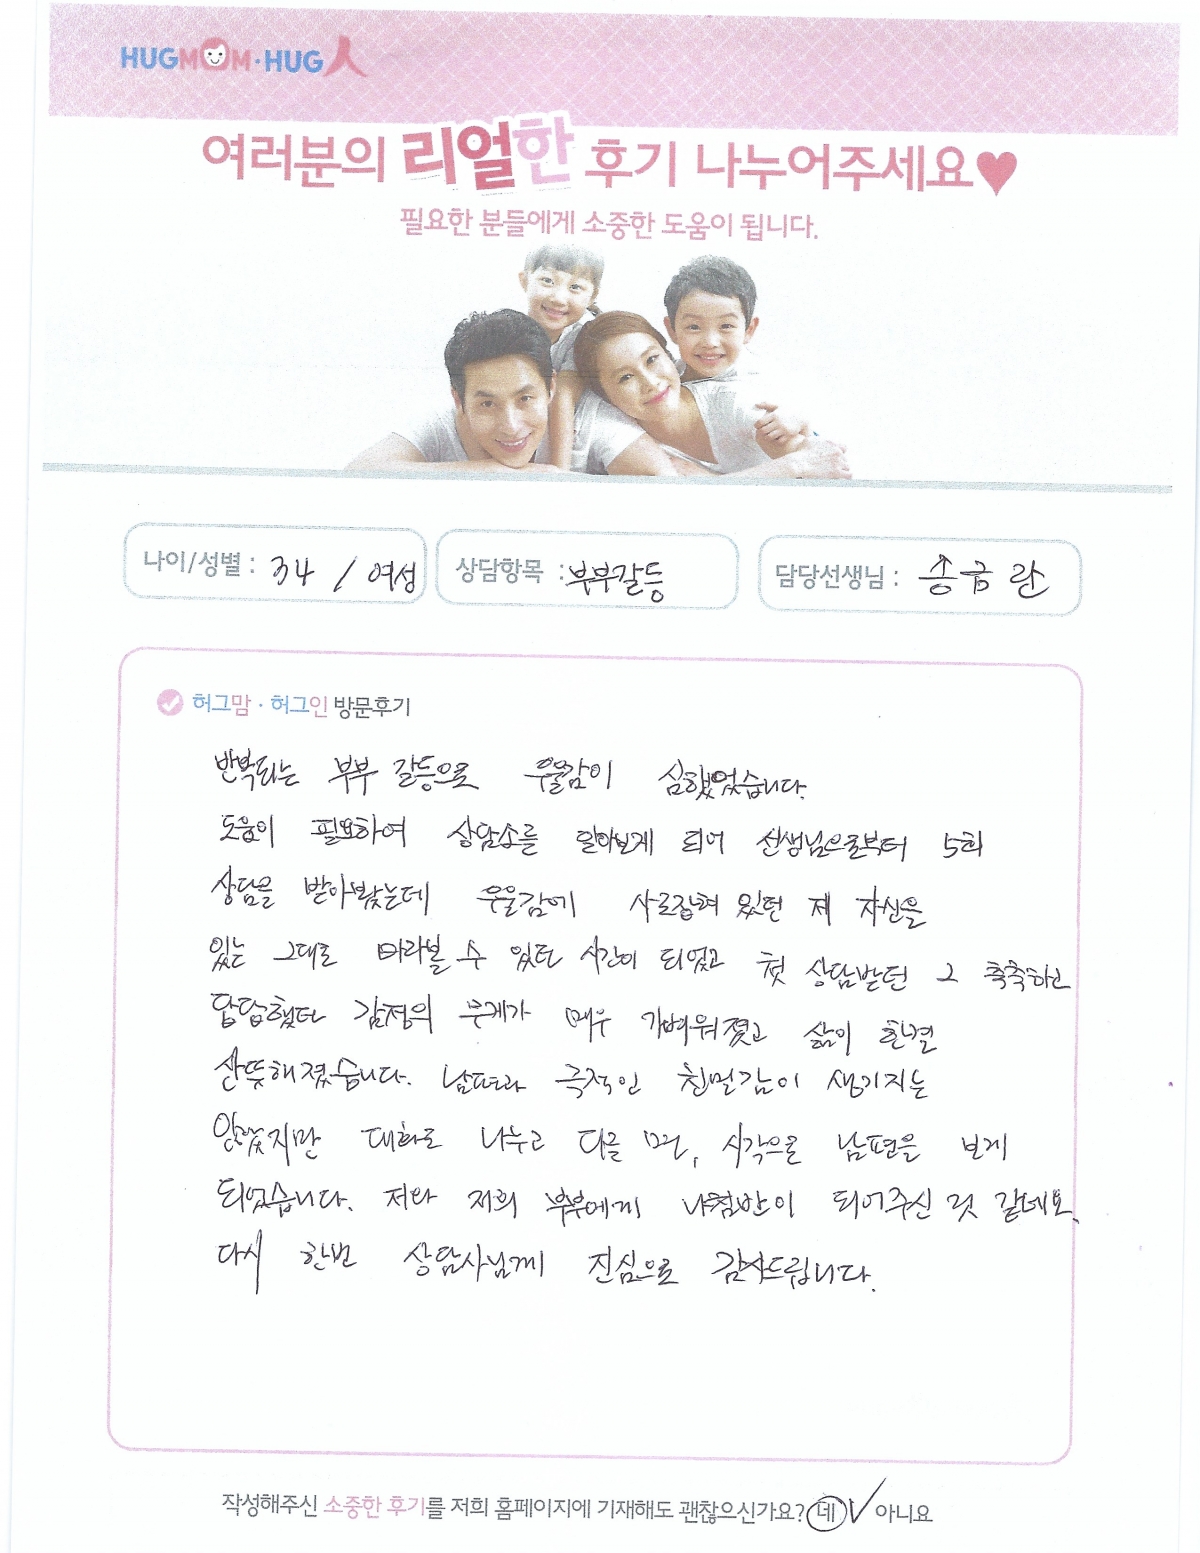 HUGMOM·HUG人
여러분의 리얼한 후기 나누어주세요♥
필요한 분들에게 소중한 도움이 됩니다.
나이/성별 : 34 / 여성 상담항목 : 부부갈등 담당선생님 : 송금란
허그맘·허그인 방문후기
반복되는 부부 갈등으로 우울감이 심했었습니다.
도움이 필요하여 상담소를 알아보게 되어 선생님으로부터 5회
상담을 받아봤는데 우울감에 사로잡혀 있던 제 자신을
있는 그대로 바라볼 수 있던 시간이 되었고 첫 상담받던 그 축축하고
답답했던 감정의 무게가 매우 가벼워졌고 삶이 한결
산뜻해졌습니다. 남편과 극적인 친밀감이 생기지는
않았지만 대화도 나누고 다른 면, 시각으로 남편을 보게
되었습니다. 저와 저희 부부에게 나침반이 되어주신 것 같네요.
다시 한번 상담사님께 진심으로 감사드립니다.
작성해주신 소중한 후기를 저희 홈페이지에 기재해도 괜찮으신가요? 네 ✓ 아니요